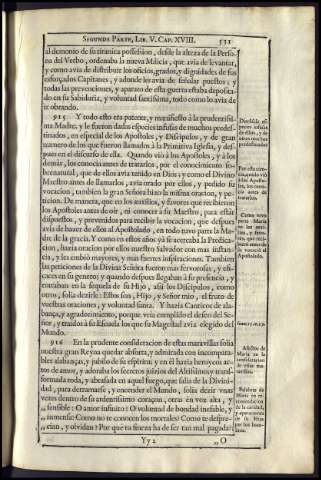 SEGUNDA PARTE, LIB. V. CAP. XVIII. 531
al demonio de su tiranica possession, desde la alteza de la Perso-
na del Verbo, ordenava la nueva Milicia, que avia de levantar,
y como avia de distribuir los oficios, grados, y dignidades de sus
esforçados Capitanes, y adonde les avia de señalar puestos: y
todas las prevenciones, y aparato de esta guerra estava deposita-
do en su Sabiduria, y voluntad santissima, todo como lo avia de
ir obrando.
915 Y todo esto era patente, y manifiesto à la prudentissi-
ma Madre, y le fueron dadas especies infusas de muchos predes-
tinados, en especial de los Apostoles, y Discipulos, y de gran
numero de los que fueron llamados à la Primitiva Iglesia, y des-
pues en el discurso de ella. Quando viò à los Apostoles, y à los
demàs, los conocia antes de tratarlos, por el conocimiento so-
brenatural, que de ellos avia tenido en Dios; y como el Divino
Maestro antes de llamarlos, avia orado por ellos, y pedido su
vocacion; tambien la gran Señora hizo la misma oracion, y pe-
ticion. De manera, que en los auxilios, y favores que recibieron
los Apostoles antes de oir, ni conocer à su Maestro, para estàr
dispuestos, y prevenidos para recibir la vocacion, que despues
avia de hazer de ellos al Apostolado, en todo tuvo parte la Ma-
dre de la gracia. Y como en estos años yà se acercaba la Predica-
cion, hazia oracion por ellos nuestro Salvador con mas instan-
cia, y les embiò mayores, y mas fuertes inspiraciones. Tambien
las peticiones de la Divina Señora fueron mas fervorosas, y efi-
caces en su genero; y quando despues llegaban à su presencia, y
entraban en la sequela de su Hijo, assi los Discipulos, como
otros, solia dezirle: Estos son, Hijo, y Señor mio, el fruto de
vuestras oraciones, y voluntad santa. Y hazia Canticos de ala-
bança, y agradecimiento, porque veia cumplido el deseo del Se-
ñor, y traidos à su Escuela los que su Magestad avia elegido del
Mundo.
916 En la prudente consideracion de estas maravillas solia
nuestra gran Reyna quedar absorta, y admirada con incompara-
bles alabanças, y jubilo de su espiritu; y en èl hazia heroycos ac-
tos de amor, y adoraba los secretos juizios del Altissimo; y trans-
formada toda, y abrasada en aquel fuego, que salia de la Divini-
dad, para derramarse, y encender el Mundo, solia dezir unas
„ vezes dentro de su ardentissimo coraçon, otras en voz alta, y
„ sensible: O amor infinito! O voluntad de bondad inefable, y
„ immensa! Como no te conocen los mortales? Como te despre-
„ cian, y olvidan? Por què tu fineza ha de ser tan mal pagada?
Yy 2 „O